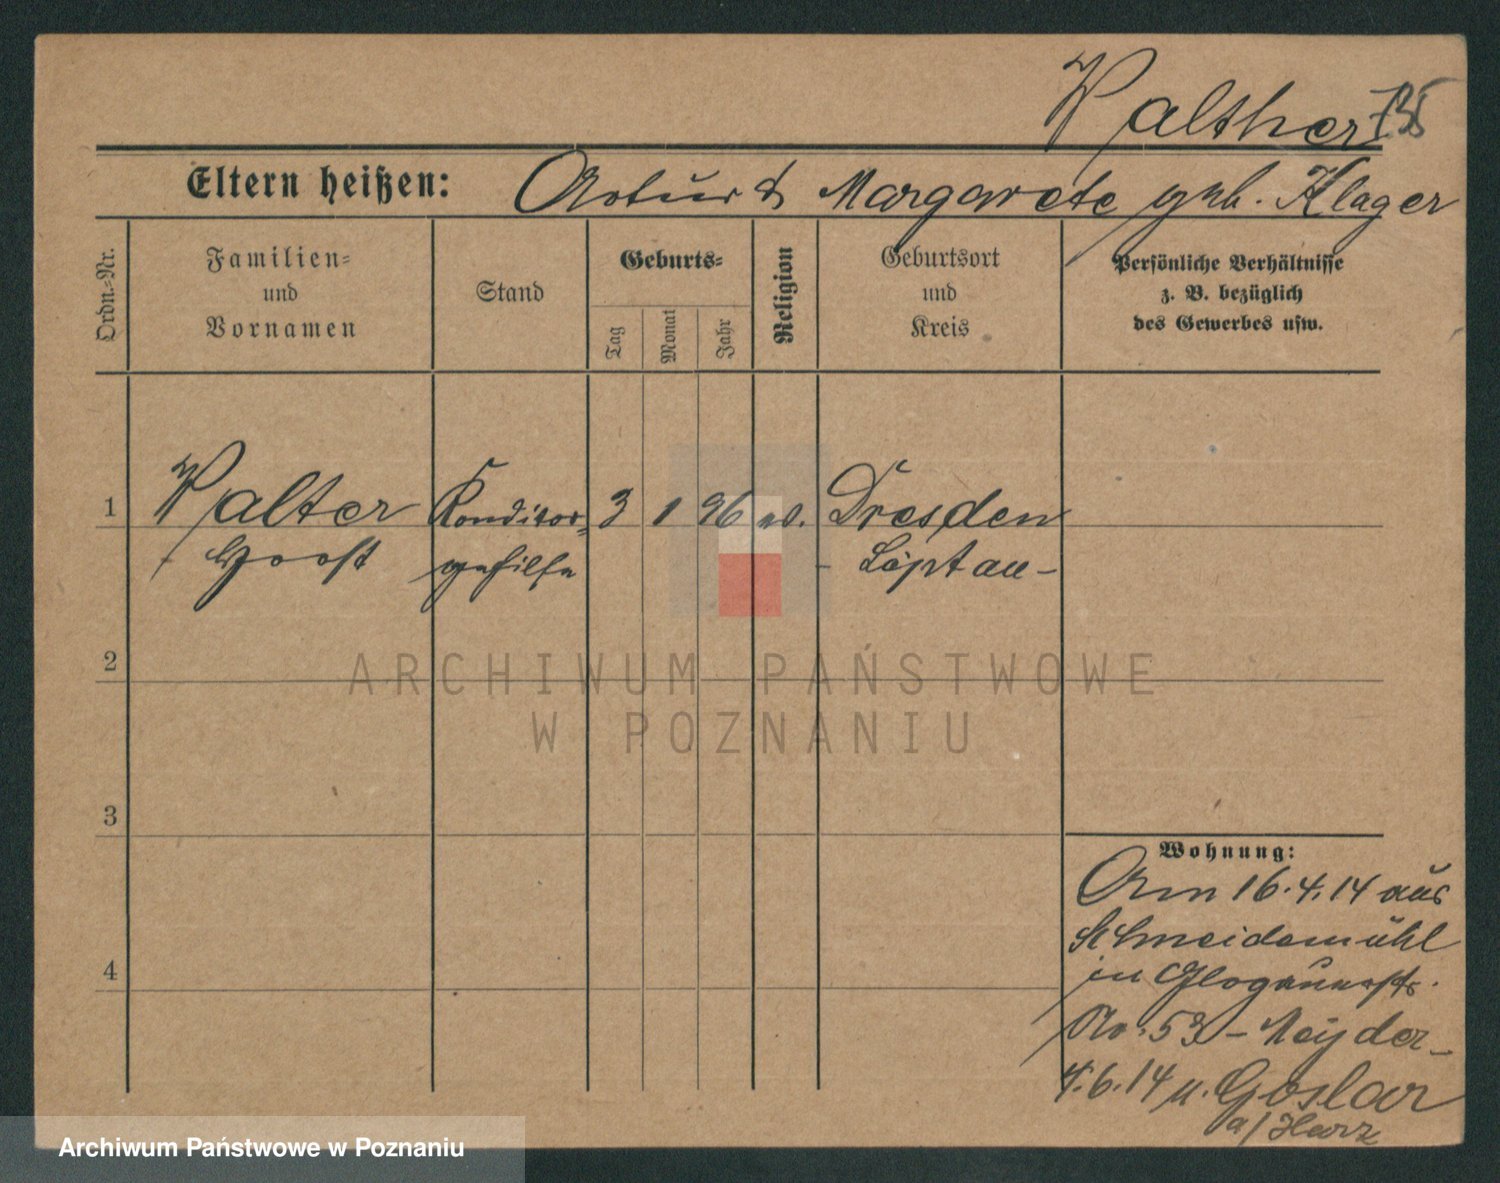 Walther 735
Eltern heißen: Artur & Margarete geb. Klager
Ordn.=Nr.
Familien=
und
Vornamen
Stand
Geburts=
Tag
Monat
Jahr
Religion
Geburtsort
und
Kreis
Persönliche Verhältnisse
z. B. bezüglich
des Gewerbes usw.
1 Walter Konditor= 3 1 96 ev. Dresden
gehilfe - Löptau -
2
3
4
Wohnung:
Am 16.4.14 aus
Schneidemühl
in Glogauerstr.
No. 53 -
4.6.14 n. Goslar
a/Harz
ARCHIWUM PAŃSTWOWE
W POZNANIU
Archiwum Państwowe w Poznaniu